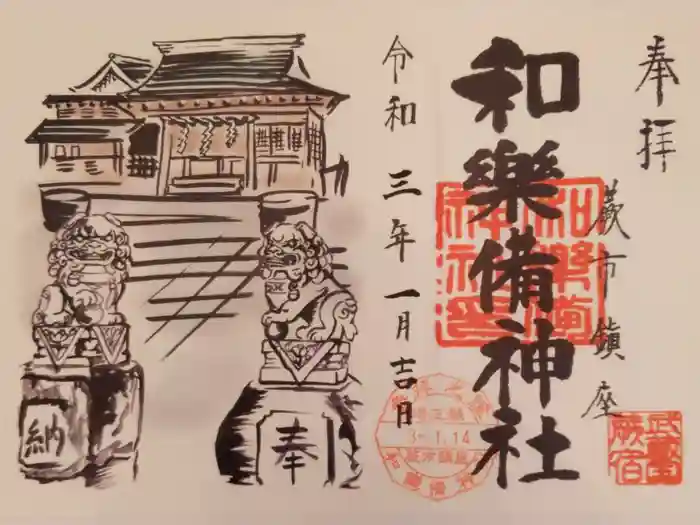 奉拝
蕨市鎮座
和樂備神社
令和三年一月吉日
奉
納
和樂備神社印
3.-1.14
武蔵
蕨宿